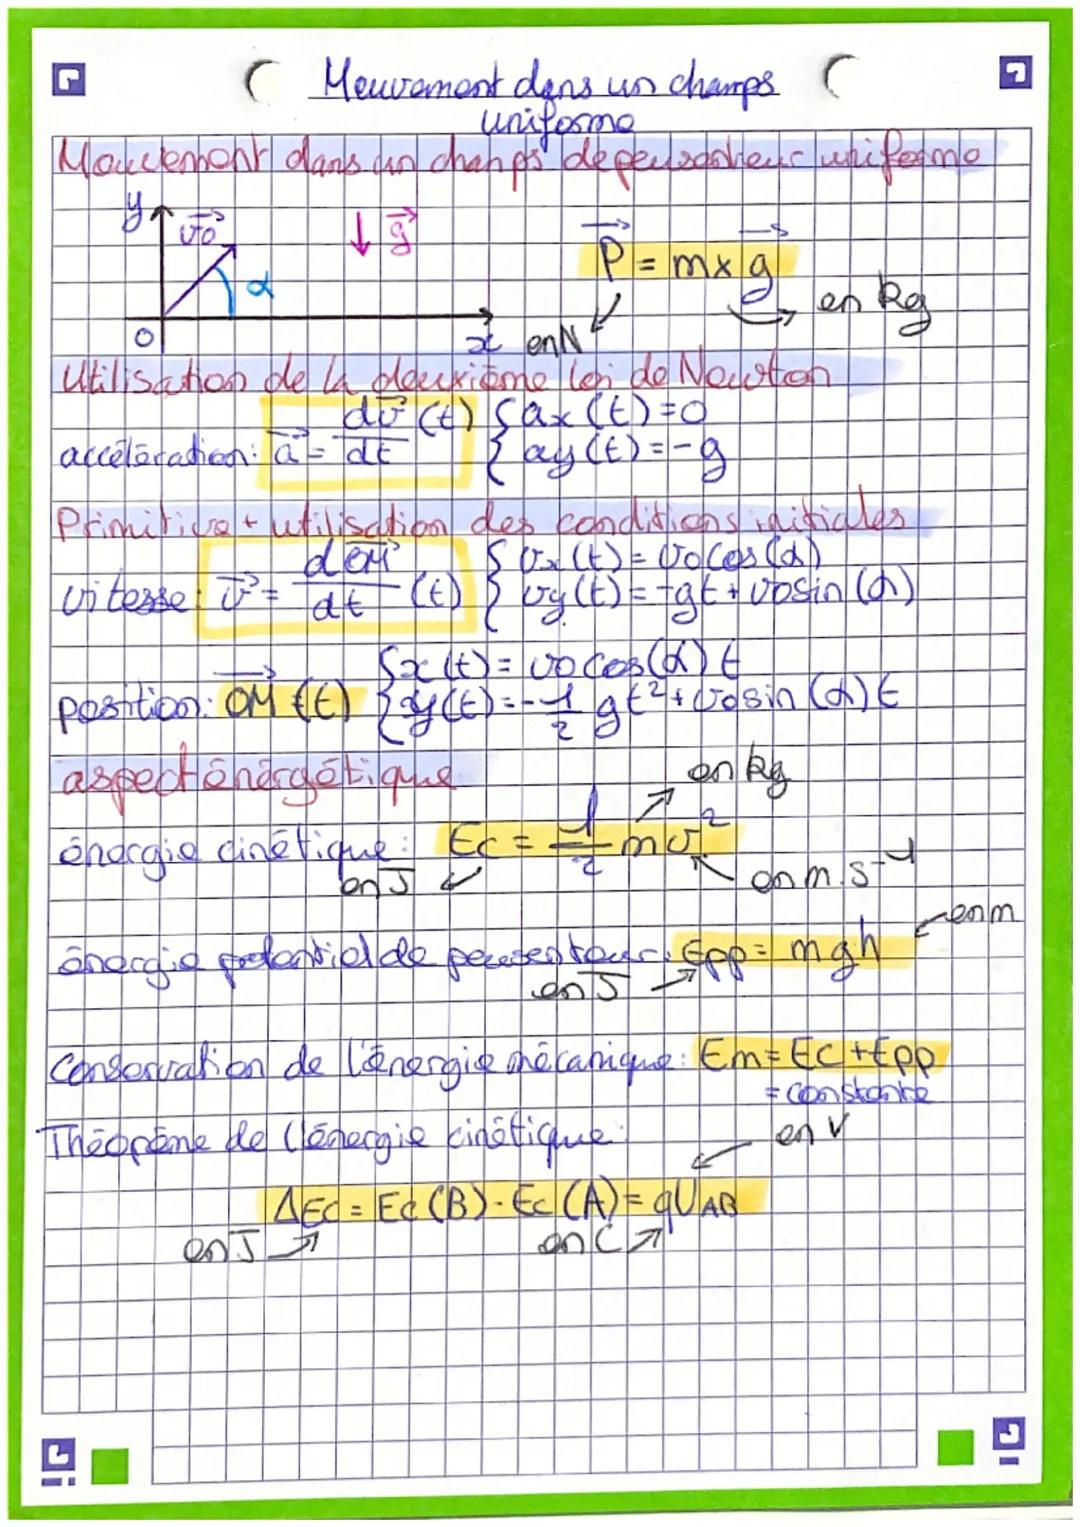 Mouvement dans un champs
uniforme
Mouvement dans un champs de pensenteur uniforme
y
v₀
g
α
O
x
P = m x g
en N
en kg
Utilisation de la deuxième loi de Newton
accélération: a = dv/dt (t) { ax(t) = 0
{ ay(t) = -g
Primitive + utilisation des conditions initiales
vitesse: v = dOM/dt (t) { vx(t) = v0 cos(α)
{ vy(t) = -gt + v0 sin(α)
position: OM (t) { x(t) = v0 cos(α) t
{ y(t) = -1/2 gt² + v0 sin(α) t
aspect énérgétique
en kg
énergie cinétique: Ec = 1/2 mv²
en J
en m.s⁻¹
en m
énergie potentiel de pensenteur: Epp = mgh
en J
Conservation de l'énergie mécanique: Em = Ec + Epp
= constante
Théorème de l'énergie cinétique:
en V
ΔEc = Ec (B) - Ec (A) = qUAB
en J
en C